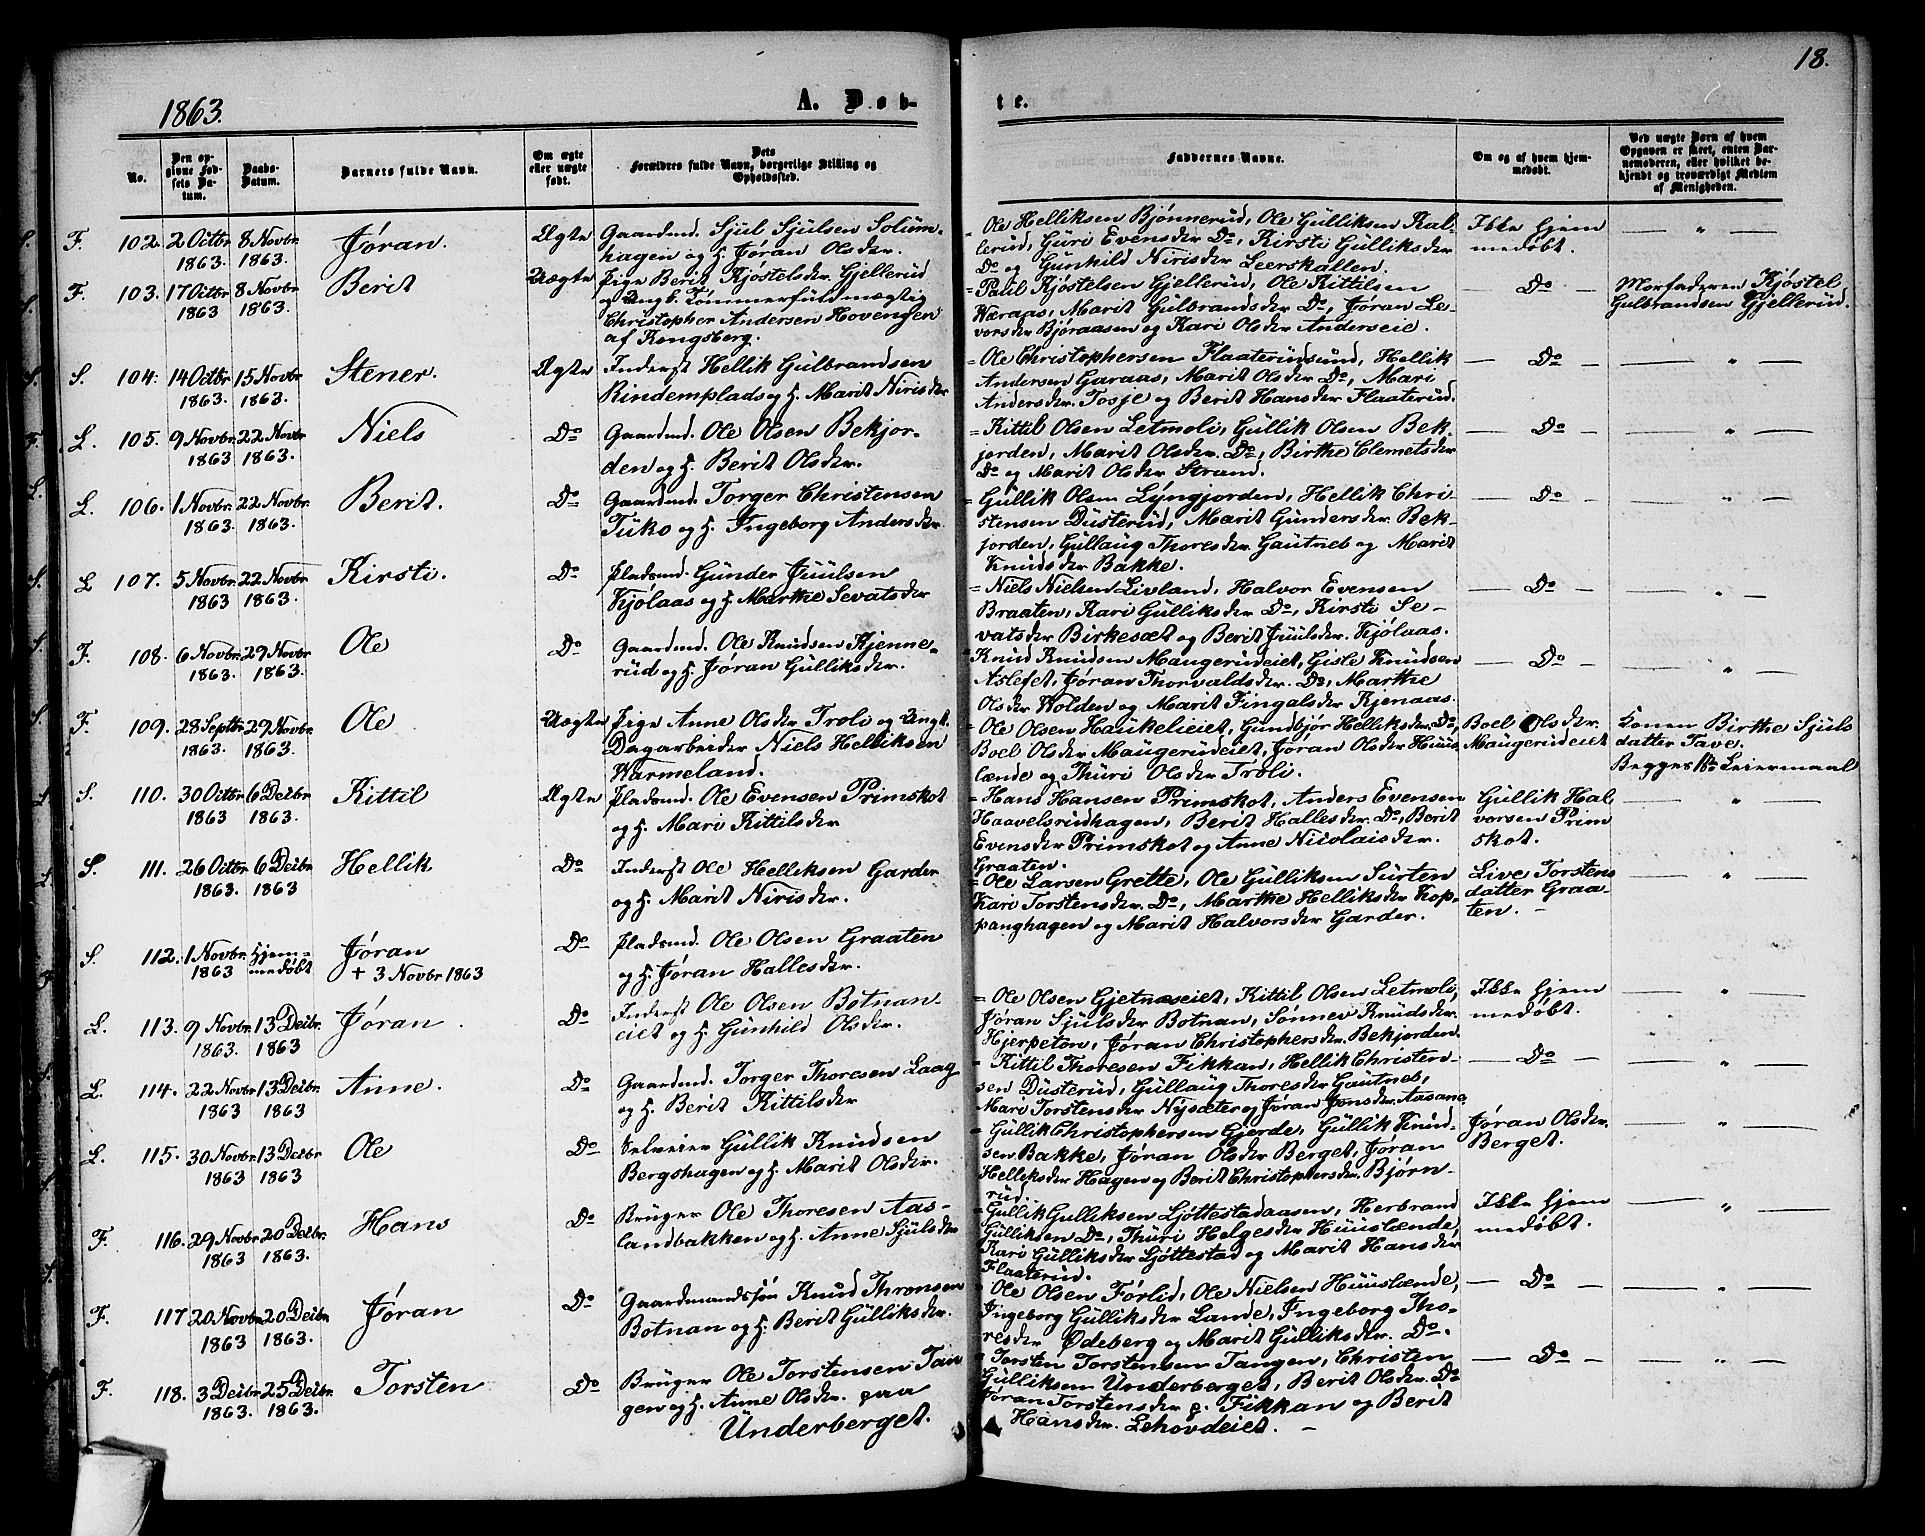 18.
1863.
A. Døb-
te.
No.
Den op-
givne Fød-
sels Da-
tum.
Daabs-
Datum.
Barnets fulde Navn.
Om ægte
eller uægte
født.
Dets
Forældres fulde Navn, borgerlige Stilling og
Opholdssted.
Faddernes Navne.
Om og af hvem hjem-
medøbt.
Ved uægte Barn af hvem
Opgaven er skeet, enten Bar-
nemoderen, eller hvilket be-
kjendt og troværdigt Medlem
af Menigheden.
F. 102. 2 Octbr 1863. 8 Novbr 1863. Jøran. Ægte
Gaardmd. Sjul Sjulsen Solum-
hagen og H. Jøran Olsdr.
= Ole Helliksen Bjønnerud, Ole Gulliksen Kal-
lerud, Guri Evensdr Do, Kirsti Gulliksdr
Do og Gunhild Nirisdr Leerskallen.
Ikke hjem
medøbt.
— " —
F. 103. 17 Octbr 1863 8 Novbr 1863. Berit Uægte
Pige Berit Kjøstelsdr. Gjellerud
og Ungk. Tømmerfuldmægtig
Christopher Andersen Hovengen
af Kongsberg.
= Paul Kjøstelsen Gjellerud, Ole Kittilsen
Væraas, Marit Gulbrandsdr Do, Jøran Le-
vorsdr Bjøraasen og Kari Olsdr Anderseie.
— Do —
Morfaderen Kjøstel
Gulbrandsen Gjellerud.
S. 104. 14 Octbr 1863. 15 Novbr 1863. Stener. Ægte
Inderst Hellik Gulbrandsen
Rindemplads og H. Marit Nirisdr
= Ole Christophersen Flaaterudsund, Hellik
Andersen Garaas, Marit Olsdr Do, Mari
Andersdr. Tosje og Berit Hansdr Flaaterud.
— Do — — " —
L. 105. 9 Novbr. 1863 22 Novbr 1863. Niels Do
Gaardmd. Ole Olsen Bekjor-
den og H. Berit Olsdr.
= Kittil Olsen Letmoli, Gullik Olsen Bek-
jorden, Marit Olsdr. Do, Birthe Clemetsdr
Do og Marit Olsdr Strand.
— Do — — " —
L. 106. 1 Novbr. 1863. 22 Novbr. 1863. Berit. Do
Gaardmd. Torger Christensen
Tuko og H. Ingeborg Andersdr.
= Gullik Olsen Lyngjorden, Hellik Chri-
stensen Dusterud, Marit Gundersdr. Bek-
jorden, Gullaug Thoresdr. Gautneb og Marit
Knudsdr Bakke.
— Do — — " —
L 107. 5 Novbr. 1863 22 Novbr 1863. Kirsti. Do
Pladsmd. Gunder Juulsen
Kjølaas og H. Marthe Sevatsdr
= Niels Nielsen Livland, Halvor Evensen
Braaten, Kari Gulliksdr Do, Kirsti Se-
vatsdr Birkesæt og Berit Juulsdr. Kjølaas.
— Do — — " —
F. 108. 6 Novbr. 1863. 29 Novbr 1863. Ole Do
Gaardmd. Ole Knudsen Kjenne-
rud og H. Jøran Gulliksdr.
= Knud Knudsen Maugerudeiet, Gisle Knudsen
Aslefet, Jøran Thorvaldsdr. Do, Marthe
Olsdr Wolden og Marit Fingalsdr Kjenaas.
— Do — — " —
F. 109. 28 Septbr 1863. 29 Novbr. 1863. Ole Uægte
Pige Anne Olsdr Troli og Ungk.
Dagarbeider Niels Helliksen
Warmeland.
= Ole Olsen Haukelieiet, Gunbjør Helliksdr. Do,
Boel Olsdr Maugerudeiet, Jøran Olsdr Huus-
lænde og Thuri Olsdr Troli.
Boel Olsdr.
Maugerudeiet
Konen Birthe Sjuls
datter Tave.
Begges 1ste Leiermaal
S. 110. 30 Octbr 1863 6 Decbr 1863. Kittil Ægte
Pladsmd. Ole Evensen Primskot
og H. Mari Kittilsdr
= Hans Hansen Primskot, Anders Evensen
Haavelsrudhagen, Berit Hallesdr. Do, Berit
Evensdr Primskot og Anne Nicolaisdr.
Graaten.
Gullik Hal
vorsen Prim
skot.
— " —
S. 111. 26 Octbr 1863. 6 Decbr 1863 Hellik Do
Inderst Ole Helliksen Garder
og H. Marit Nirisdr.
= Ole Larsen Grette, Ole Gulliksen Surten
Kari Torstensdr. Do, Marthe Helliksdr Kop-
panghagen og Marit Halvorsdr Garder.
Live Torstens
datter Graa-
ten. —
— " —
S. 112. 1 Novbr. 1863 Hjem-
medøbt Jøran
+ 3 Novbr 1863 Do
Pladsmd. Ole Olsen Graaten
og H. Jøran Hallesdr.
L. 113. 9 Novbr 1863. 13 Decbr. 1863 Jøran. Do
Inderst Ole Olsen Botnan-
eiet og H. Gunhild Olsdr.
= Ole Olsen Gjetnæseiet, Kittil Olsen Letmoli,
Jøran Sjulsdr Botnan, Sønnev Knudsdr.
Hjerpeton, Jøran Christophersdr Bekjorden.
Ikke hjem
medøbt.
— " —
L. 114. 22 Novbr 1863 13 Decbr. 1863 Anne. Do
Gaardmd. Torger Thoresen Laag
og H. Berit Kittilsdr
= Kittil Thoresen Fikkan, Hellik Christen-
sen Dusterud, Gullaug Thoresdr Gautneb,
Mari Torstensdr Nysæter og Jøran Jonsdr. Aasane
— Do — — " —
L. 115. 30 Novbr. 1863 13 Decbr 1863 Ole Do
Selveier Gullik Knudsen
Bergshagen og H. Marit Olsdr.
= Gullik Christophersen Gjerde, Gullik Knud-
sen Bakke, Jøran Olsdr Berget, Jøran
Helliksdr Hagen og Berit Christophersdr Bjørn-
rud.
Jøran Olsdr.
Berget.
— " —
F. 116. 29 Novbr 1863 20 Decbr. 1863. Hans Do
Bruger Ole Thoresen Aas-
landbakken og H. Anne Sjulsdr
= Gullik Gulliksen Ljøttestadaasen, Herbrand
Gulliksen Do, Thuri Helgesdr Huuslænde,
Kari Gulliksdr Ljøttestad og Marit Hansdr
Flaaterud.
Ikke hjem
medøbt.
— " —
F. 117 20 Novbr 1863 20 Decbr 1863. Jøran Do
Gaardmandssøn Knud Thronsen
Botnan og H. Berit Gulliksdr.
= Ole Olsen Førlid, Ole Nielsen Huuslænde,
Ingeborg Gulliksdr Lande, Ingeborg Tho-
resdr Ødeberg og Marit Gulliksdr. Do.
— Do — — " —
F. 118. 3 Decbr 1863. 25 Decbr. 1863. Torsten Do
Bruger Ole Torstensen Tan
gen og H. Anne Olsdr. paa
Underberget.
= Torsten Torstensen Tangen, Christen
Gulliksen Underberget, Berit Olsdr. Do
Jøran Torstensdr p. Fikkan og Berit
Hansdr. Lehovdeiet. —
— Do — — " —